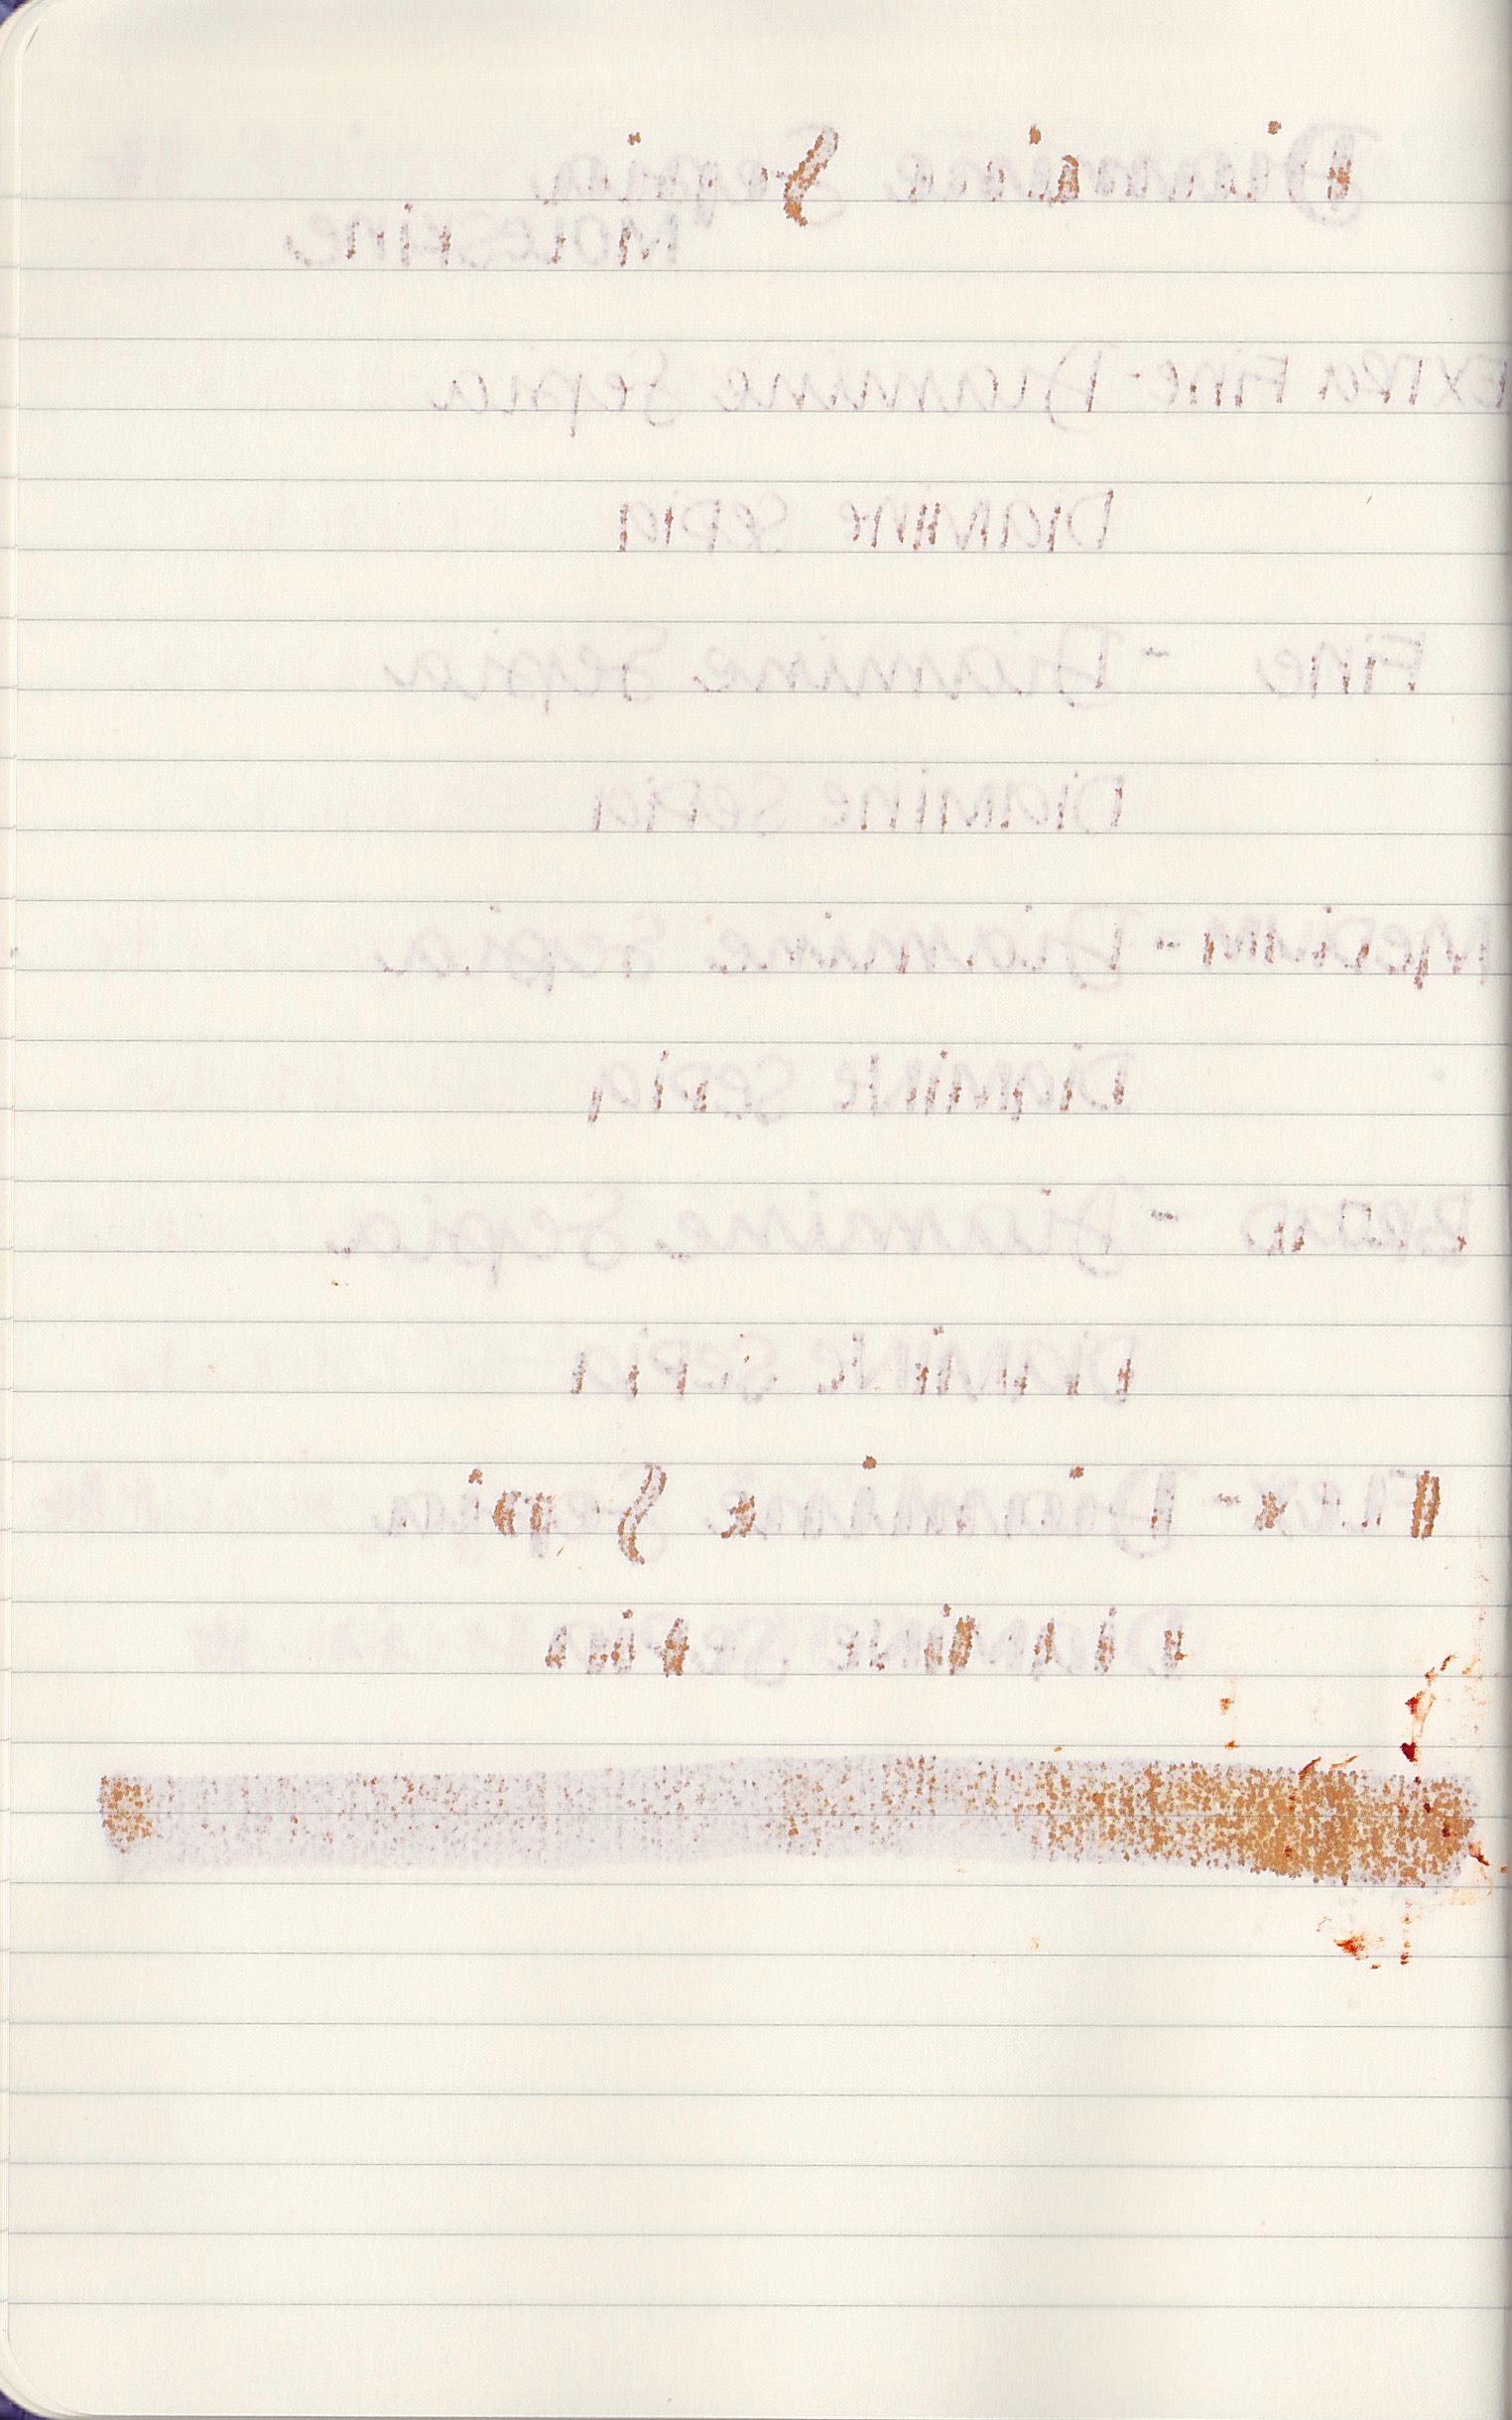 Diamine Sepia
Moleskine
Extra Fine - Diamine Sepia
Diamine Sepia
Fine - Diamine Sepia
Diamine Sepia
Medium - Diamine Sepia
Diamine Sepia
Broad - Diamine Sepia
Diamine Sepia
Flex - Diamine Sepia
Diamine Sepia